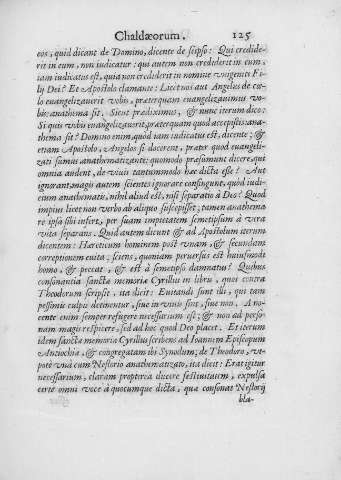 Chaldæorum. 125
eos, quid dicant de Domino, dicente de seipso: Qui credide-
rit in eum, non iudicatur: qui autem non crediderit in eum,
iam iudicatus est, quia non crediderit in nomine vnigeniti Fi-
lij Dei? Et Apostolo clamante: Licet nos aut Angelus de cæ-
lo euangelizauerit vobis, præterquam euangelizauimus vo-
bis: anathema sit. Sicut prædiximus, & nunc iterum dico:
Si quis vobis euangelizauerit, præterquam quod accepistis: ana-
thema sit? Domino enim, quòd iam iudicatus est, dicente; &
etiam Apostolo, Angelos si docerent, præter quod euangeli-
zati sumus anathematizante: quomodo præsumunt dicere, qui
omnia audent, de viuis tantummodo hæc dicta esse? Aut
ignorant, magis autem scientes ignorare confingunt, quòd iudi-
cium anathematis, nihil aliud est, nisi separatio à Deo? Quod
impius licet non verbo ab aliquo suscepisset; tamen anathema
re ipsa sibi infert, per suam impietatem semetipsum à vera
vita separans. Quid autem dicunt & ad Apostolum iterum
dicentem: Hæreticum hominem post vnam, & secundam
correptionem euita; sciens, quoniam peruersus est huiusmodi
homo, & peccat, & est à semetipso damnatus? Quibus
consonantia sanctæ memoriæ Cyrillus in libris, quos contra
Theodorum scripsit, ita dicit: Euitandi sunt illi, qui tam
pessimis culpis detinentur, siue in viuis sint, siue non. A no-
cente enim semper refugere necessarium est; & non ad perso-
nam magis respicere, sed ad hoc quod Deo placet. Et iterum
idem sanctæ memoriæ Cyrillus scribens ad Ioannem Episcopum
Antiochiæ, & congregatam ibi Synodum; de Theodoro, vt-
pote vnà cum Nestorio anathematizato, ita dicit: Erat igitur
necessarium, claram propterea ducere festiuitatem, expulsa
certe omni voce à quocumque dicta, quæ consonat Nestorij
bla-